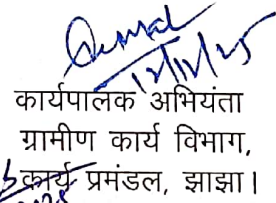 12/11/25
कार्यपालक अभियंता
ग्रामीण कार्य विभाग,
कार्य प्रमंडल, झाझा।